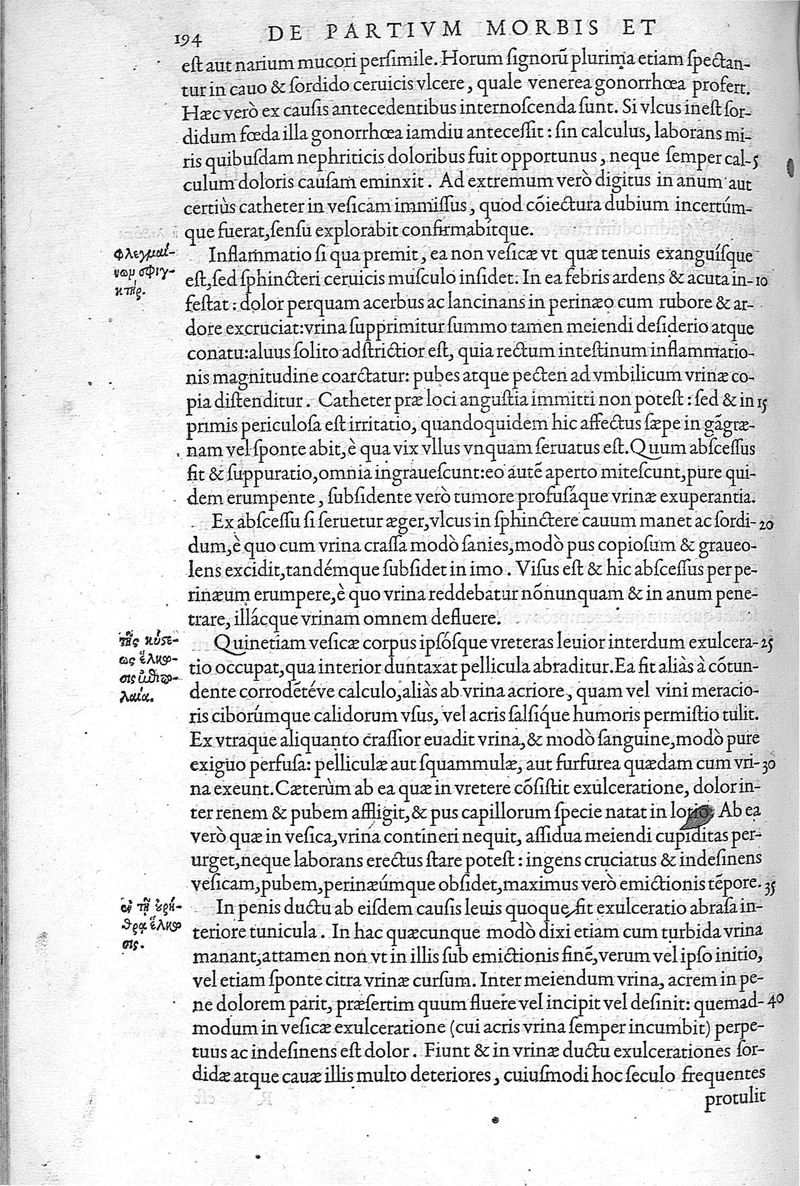 194 DE PARTIVM MORBIS ET
est aut narium mucori persimile. Horum signorũ plurima etiam spectan-
tur in cauo & sordido ceruicis vlcere, quale venerea gonorrhœa profert.
Hæc verò ex causis antecedentibus internoscenda sunt. Si vlcus inest sor-
didum fœda illa gonorrhœa iamdiu antecessit: sin calculus, laborans mi-
ris quibusdam nephriticis doloribus fuit opportunus, neque semper cal- 5
culum doloris causam eminxit. Ad extremum verò digitus in anum aut
certiùs catheter in vesicam immissus, quod cõiectura dubium incertúm-
que fuerat, sensu explorabit confirmabítque.
Φλεγμαί-
νων σφιγ-
κτήρ.
Inflammatio si qua premit, ea non vesicæ vt quæ tenuis exanguísque
est, sed sphincteri ceruicis musculo insidet. In ea febris ardens & acuta in- 10
festat: dolor perquam acerbus ac lancinans in perinæo cum rubore & ar-
dore excruciat: vrina supprimitur summo tamen meiendi desiderio atque
conatu: aluus solito adstrictior est, quia rectum intestinum inflammatio-
nis magnitudine coarctatur: pubes atque pecten ad vmbilicum vrinæ co-
pia distenditur. Catheter præ loci angustia immitti non potest: sed & in 15
primis periculosa est irritatio, quandoquidem hic affectus sæpe in gãgræ-
nam vel sponte abit, è qua vix vllus vnquam seruatus est. Quum abscessus
fit & suppuratio, omnia ingrauescunt: eo autẽ aperto mitescunt, pure qui-
dem erumpente, subsidente verò tumore profusáque vrinæ exuperantia.
Ex abscessu si seruetur æger, vlcus in sphinctere cauum manet ac sordi- 20
dum, è quo cum vrina crassa modò sanies, modò pus copiosum & graueo-
lens excidit, tandémque subsidet in imo. Visus est & hic abscessus per pe-
rinæum erumpere, è quo vrina reddebatur nõnunquam & in anum pene-
trare, illácque vrinam omnem defluere.
τῆς κύστε-
ως ἕλκω-
σις ἐπιπο-
λαία.
Quinetiam vesicæ corpus ipsósque vreteras leuior interdum exulcera- 25
tio occupat, qua interior duntaxat pellicula abraditur. Ea fit aliàs à cõtun-
dente corrodẽtéve calculo, aliàs ab vrina acriore, quam vel vini meracio-
ris ciborúmque calidorum vsus, vel acris salsíque humoris permistio tulit.
Ex vtraque aliquanto crassior euadit vrina, & modò sanguine, modò pure
exiguo perfusa: pelliculæ aut squammulæ, aut furfurea quædam cum vri- 30
na exeunt. Cæterùm ab ea quæ in vretere cõsistit exulceratione, dolor in-
ter renem & pubem affligit, & pus capillorum specie natat in lotio. Ab ea
verò quæ in vesica, vrina contineri nequit, assidua meiendi cupiditas per-
urget, neque laborans erectus stare potest: ingens cruciatus & indesinens
vesicam, pubem, perinæúmque obsidet, maximus verò emictionis tẽpore. 35
ἐν τῇ οὐρή-
θρᾳ ἕλκω-
σις.
In penis ductu ab eisdem causis leuis quoque fit exulceratio abrasa in-
teriore tunicula. In hac quæcunque modò dixi etiam cum turbida vrina
manant, attamen non vt in illis sub emictionis finẽ, verum vel ipso initio,
vel etiam sponte citra vrinæ cursum. Inter meiendum vrina, acrem in pe-
ne dolorem parit, præsertim quum fluere vel incipit vel desinit: quemad- 40
modum in vesicæ exulceratione (cui acris vrina semper incumbit) perpe-
tuus ac indesinens est dolor. Fiunt & in vrinæ ductu exulcerationes sor-
didæ atque cauæ illis multo deteriores, cuiusmodi hoc seculo frequentes
protulit